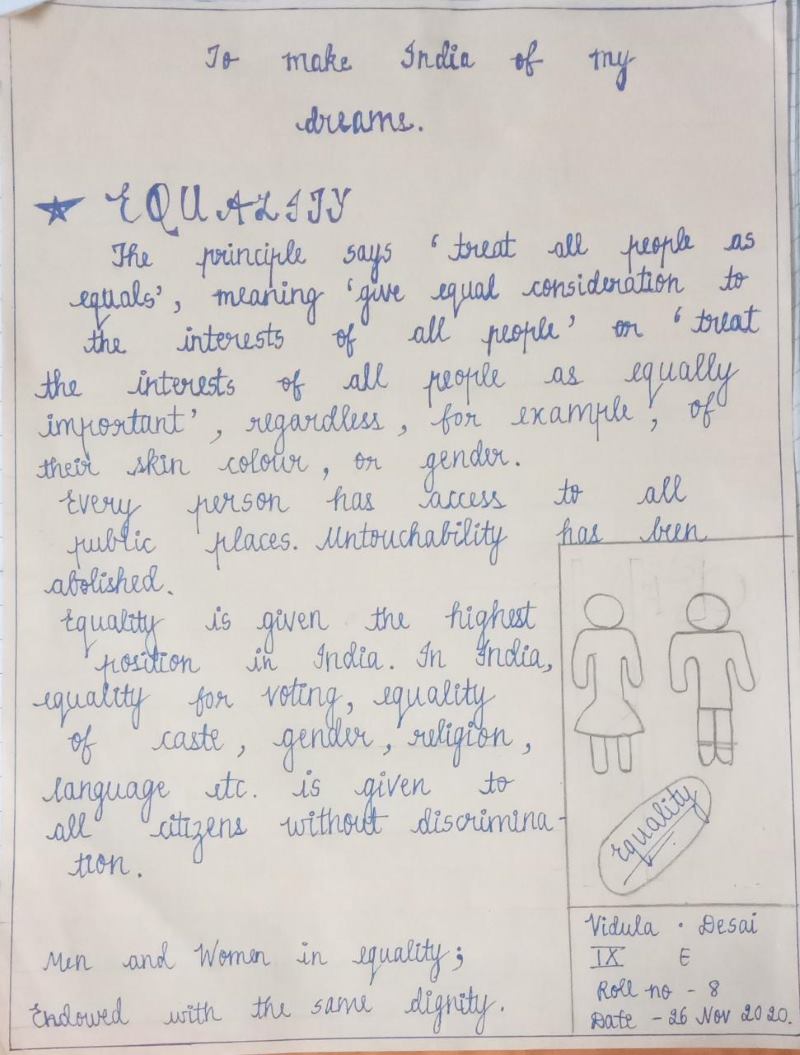 To make India of my
dreams.
★ EQUALITY
The principle says 'treat all people as
equals', meaning 'give equal consideration to
the interests of all people' or 'treat
the interests of all people as equally
important', regardless, for example, of
their skin colour, or gender.
Every person has access to all
public places. Untouchability has been
abolished.
Equality is given the highest
position in India. In India,
equality for voting, equality
of caste, gender, religion,
language etc. is given to
all citizens without discrimina-
tion.
Men and Women in equality;
Endowed with the same dignity.
equality
Vidula . Desai
IX E
Roll no - 8
Date - 26 Nov 2020.